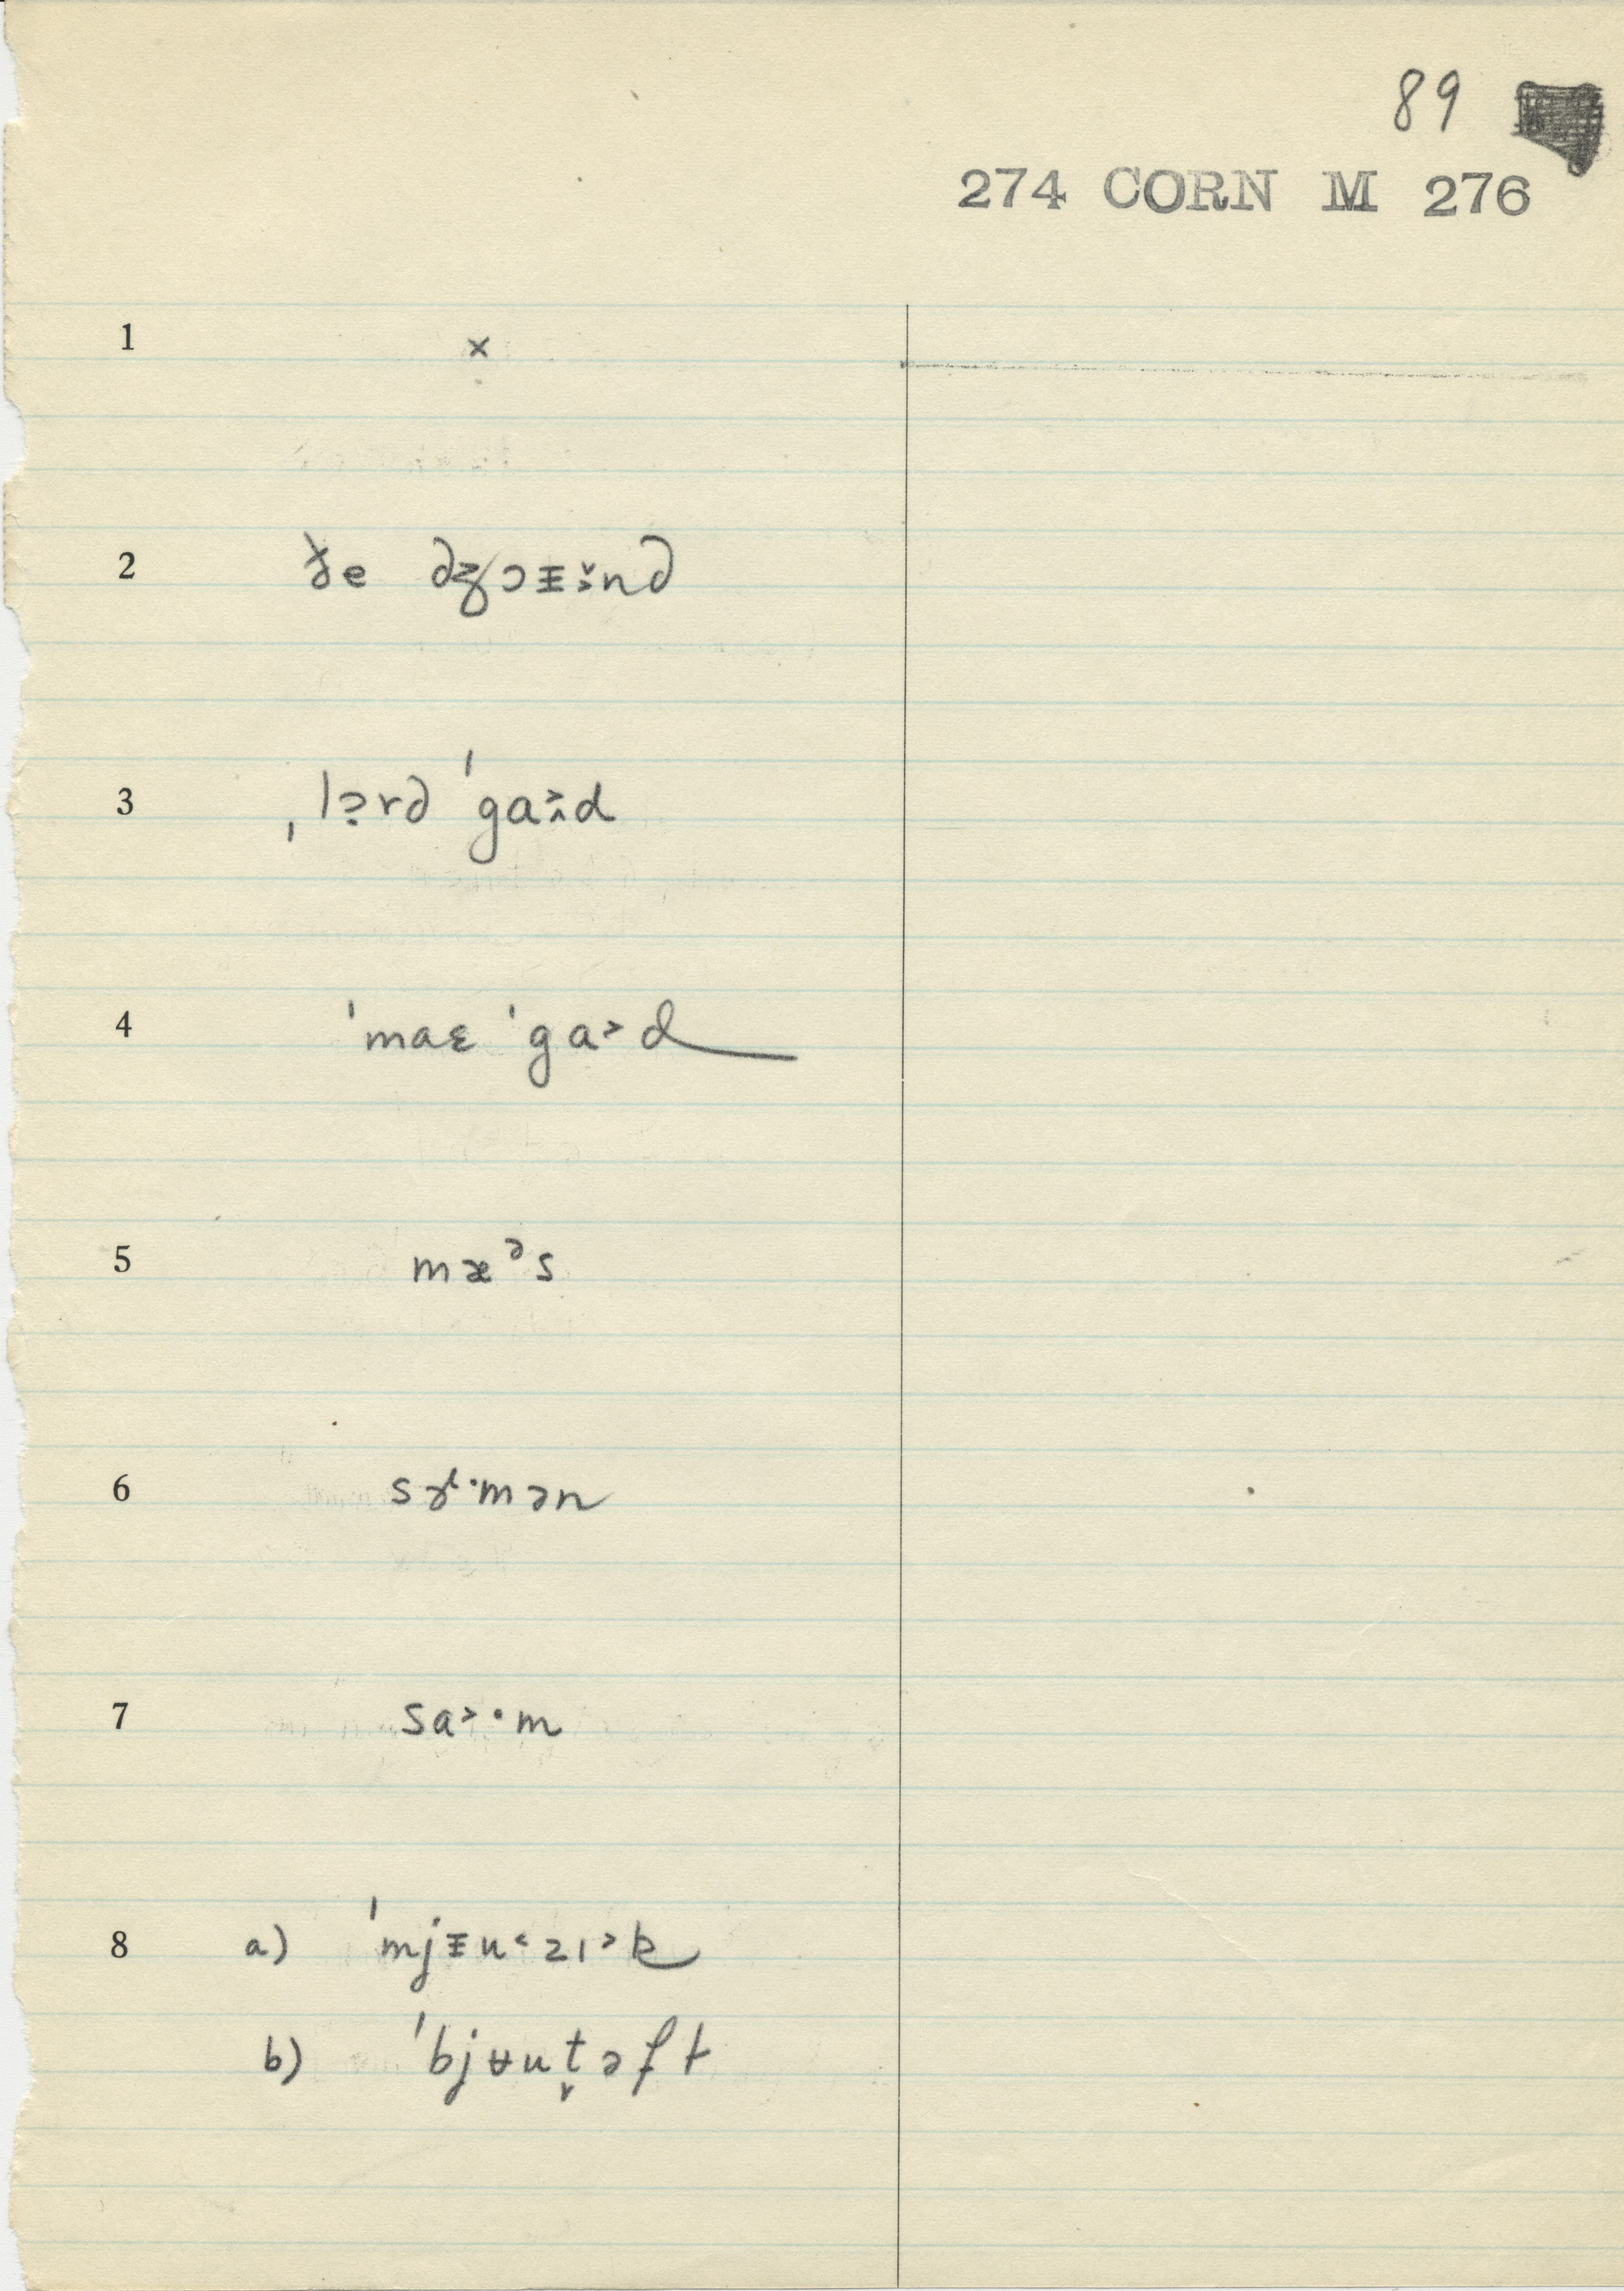 89
274 CORN M 276
1 ×
2 ðe dʒɔᵻ̌nd
3 ˌlə̣rd ˈga˃˄d
4 ˈmaɛ ˈga˃d
5 mæᵊs
6 sɝ·mən
7 sa˃·m
8 a) ˈmjᵻu˂zɪ˃k
b) ˈbjʉut̬əft